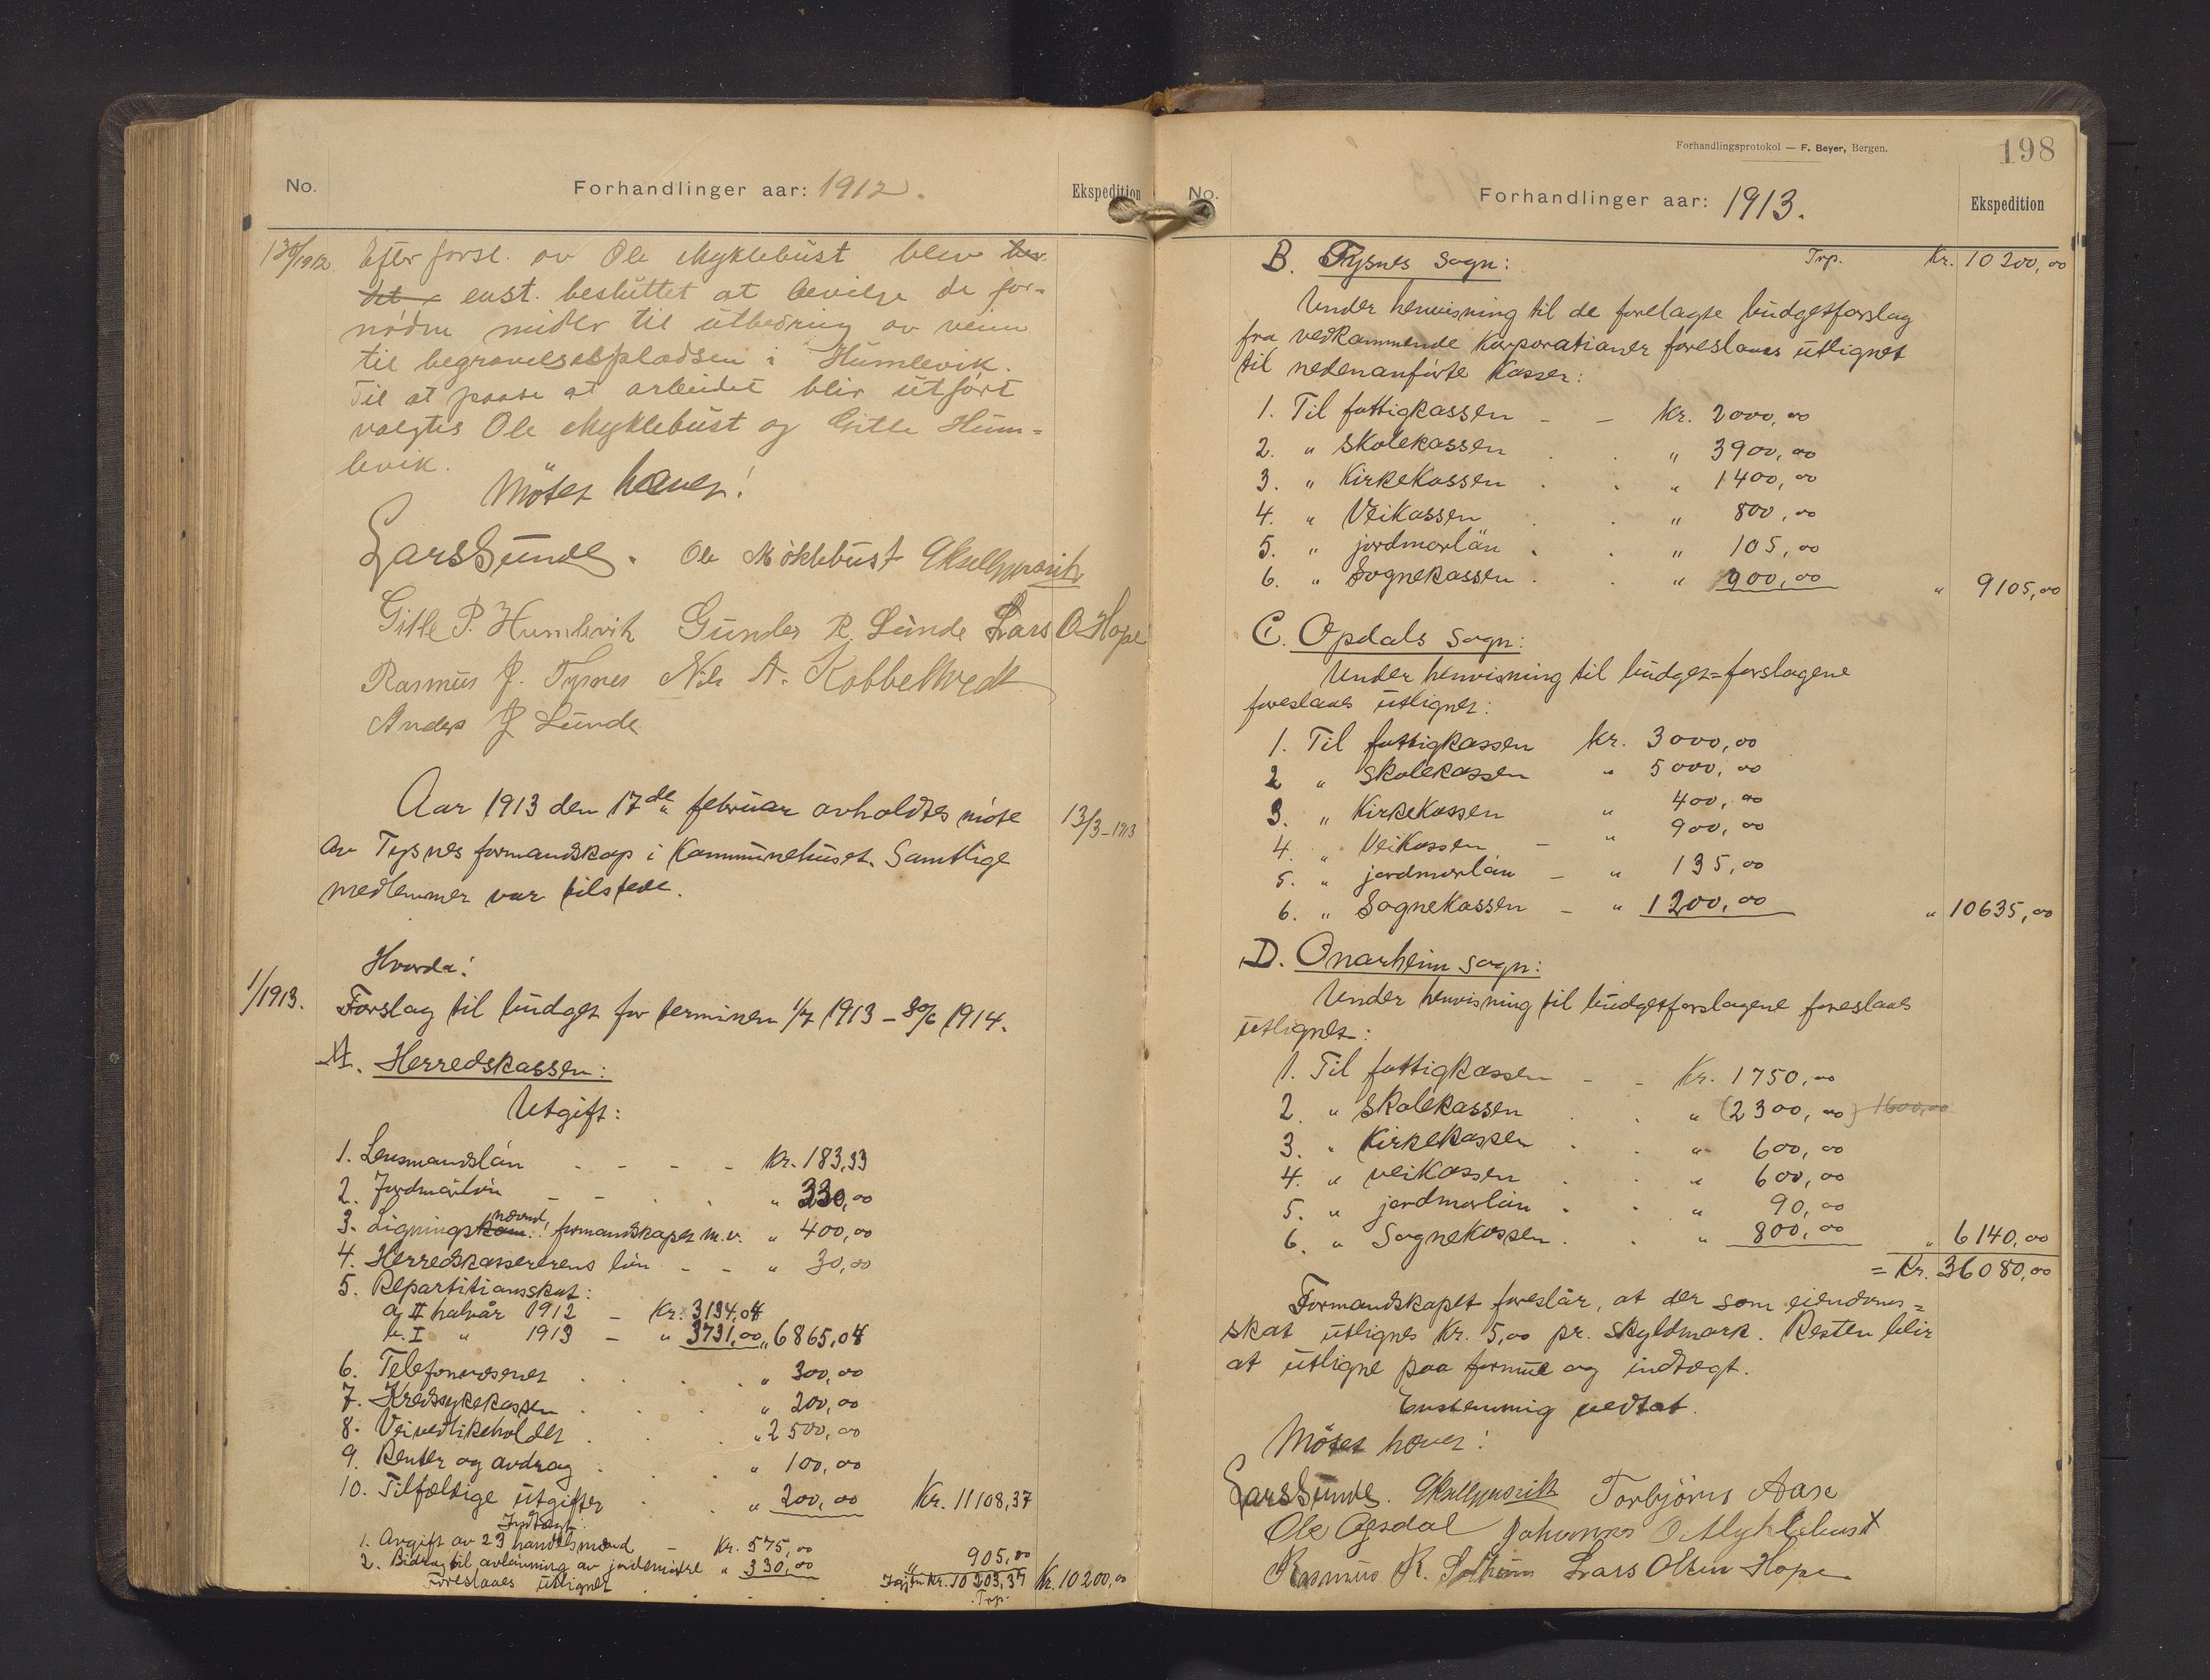 No. Forhandlinger aar: 1912. Ekspedition
130/1912 Efter forsl. av Ole Myklebust blev
enst. besluttet at bevilge de for-
nødne midler til utbedring av veien
til begravelsespladsen i Humlevik.
Til at paase at arbeidet blir utført
valgtes Ole Myklebust og Gitle Hum=
levik.
Møtet hævet!
Lars Sunde. Ole Möklebust
Gitle P. Humlevik Gunder R. Lunde Lars O Hope
Rasmus J. Tysnes Nils A. Kobbeltvedt
Anders J Lunde
Aar 1913 den 17de februar avholdtes møte 13/3-1913
av Tysnes formandskap i Kommunehuset. Samtlige
medlemmer var tilstede.
Hvorda!
1/1913. Forslag til budget for terminen 1/7 1913 – 30/6 1914.
A. Herredskassen:
Utgift:
1. Lensmandsløn - - - - Kr. 183,33
2. Jordmorløn - - . . " 330,00
3. Lignings nævnd, formandskapet m.v. " 400,00
4. Herredskassererens løn - - " 30,00
5. Repartitionsskat:
a, II halvår 1912 - Kr. 3134,04
b. I " 1913 - " 3731,00 " 6865,04
6. Telefonvæsenet . . . . " 300,00
7. Kredssykekassen . . . " 200,00
8. Veivedlikeholdet . . " 2500,00
9. Renter og avdrag . . " 100,00
10. Tilfældige utgifter . . " 200,00 Kr. 11108,37
Indtægt:
1. Avgift av 23 handelsmænd - Kr. 575,00
2. Bidrag til avlønning av jordemødre " 330,00 " 905,00
Foreslaaes utlignet . . . Kr. 10203,37 Kr. 10200,00
Trp.
Forhandlingsprotokol — F. Beyer, Bergen. 198
No. Forhandlinger aar: 1913. Ekspedition
B. Tysnes Sogn: Trp. Kr. 10200,00
Under henvisning til de forelagte budgetforslag
fra vedkommende Korporationer foreslaaes utlignet
til nedenanførte Kasser:
1. Til fattigkassen - - Kr. 2000,00
2. " skolekassen . . " 3900,00
3. " Kirkekassen . . " 1400,00
4. " Veikassen . . " 800,00
5. " jordmorløn . . " 105,00
6. " Sognekassen . . " 900,00 " 9105,00
C. Opdals Sogn:
Under henvisning til budget=forslagene
foreslaaes utlignet:
1. Til fattigkassen Kr. 3000,00
2 " skolekassen " 5000,00
3. " Kirkekassen " 400,00
4. " Veikassen - " 900,00
5. " jordmorløn - " 135,00
6. " Sognekassen - " 1200,00 " 10635,00
D. Onarheim sogn:
Under henvisning til budgetforslagene foreslaaes
utlignet:
1. Til fattigkassen - - Kr. 1750,00
2. " skolekassen . . " (2300,00) 1600,00
3. " Kirkekassen . . " 600,00
4. " veikassen . . " 600,00
5. " jordmorløn . . " 90,00
6. " Sognekassen . . " 800,00 " 6140,00
= Kr. 36080,00
Formandskapet foreslår, at der som eiendoms=
skat utlignes Kr. 5,00 pr. skyldmark. Resten blir
at utligne paa formue og indtægt.
Enstemmig vedtat.
Møtet hævet!
Lars Sunde. Torbjørns Aase
Ole Opsdal Johannes O Myklebust
Rasmus R. Lars Olsen Hope